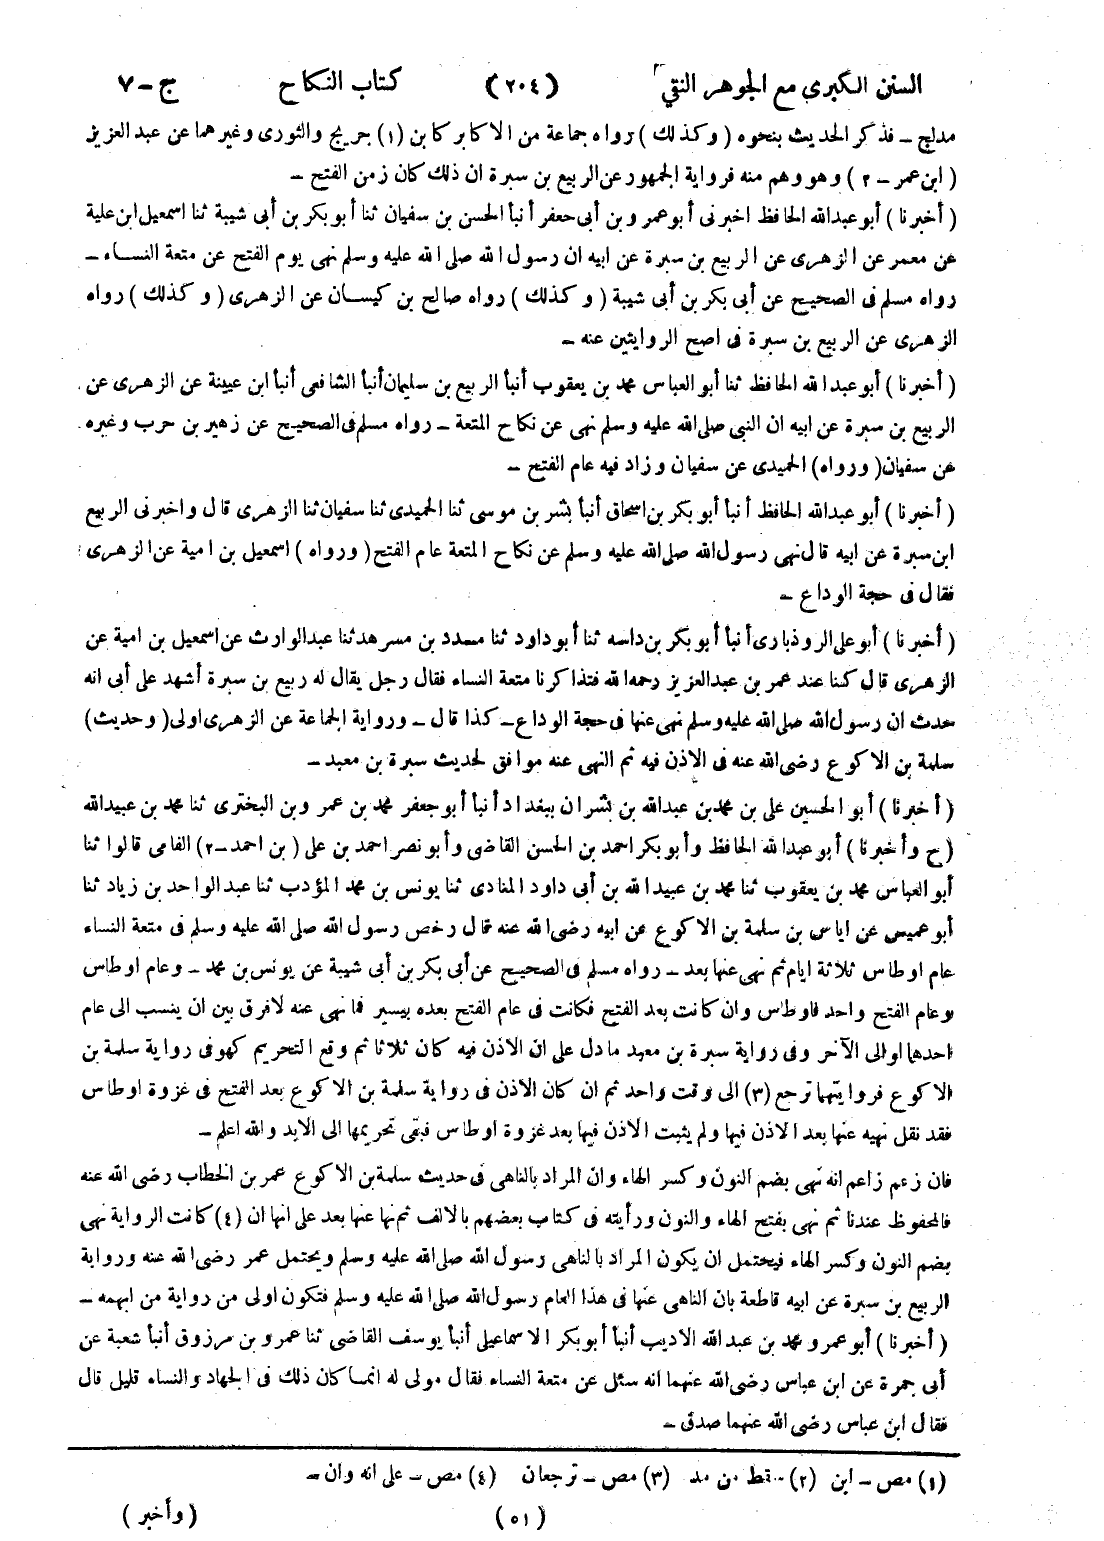 السنن الكبرى مع الجوهر النقي (٢٠٤) كتاب النكاح ج-٧
مدلج - فذكر الحديث بنحوه (وكذلك) رواه جماعة من الاكابر كابن (١) جريج والثورى وغيرهما عن عبد العزيز
(ابن عمر - ٢) وهو وهم منه فرواية الجمهور عن الربيع بن سبرة ان ذلك كان زمن الفتح -
(أخبرنا) أبو عبدالله الحافظ اخبرنى أبو عمرو بن أبى جعفر أنبأ الحسن بن سفيان ثنا أبو بكر بن أبى شيبة ثنا اسمعيل ابن علية
عن معمر عن الزهرى عن الربيع بن سبرة عن ابيه ان رسول الله صلى الله عليه وسلم نهى يوم الفتح عن متعة النساء -
رواه مسلم فى الصحيح عن أبى بكر بن أبى شيبة (وكذلك) رواه صالح بن كيسان عن الزهرى (وكذلك) رواه
الزهرى عن الربيع بن سبرة فى اصح الروايتين عنه -
(أخبرنا) أبو عبد الله الحافظ ثنا أبو العباس محمد بن يعقوب أنبأ الربيع بن سليمان أنبأ الشافعى أنبأ ابن عيينة عن الزهرى عن
الربيع بن سبرة عن ابيه ان النبى صلى الله عليه وسلم نهى عن نكاح المتعة - رواه مسلم فى الصحيح عن زهير بن حرب وغيره
عن سفيان (ورواه) الحميدى عن سفيان وزاد فيه عام الفتح -
(أخبرنا) أبو عبدالله الحافظ أنبأ أبو بكر بن اسحاق أنبأ بشر بن موسى ثنا الحميدى ثنا سفيان ثنا الزهرى قال واخبرنى الربيع
ابن سبرة عن ابيه قال نهى رسول الله صلى الله عليه وسلم عن نكاح المتعة عام الفتح (ورواه) اسمعيل بن امية عن الزهرى
فقال فى حجة الوداع -
(أخبرنا) أبو على الروذبارى أنبأ أبو بكر بن داسه ثنا أبو داود ثنا مسدد بن مسرهد ثنا عبدالوارث عن اسمعيل بن امية عن
الزهرى قال كنا عند عمر بن عبدالعزيز رحمه الله فتذاكرنا متعة النساء فقال رجل يقال له ربيع بن سبرة أشهد على أبى انه
حدث ان رسول الله صلى الله عليه وسلم نهى عنها فى حجة الوداع - كذا قال - ورواية الجماعة عن الزهرى اولى (وحديث)
سلمة بن الاكوع رضى الله عنه فى الاذن فيه ثم النهى عنه موافق لحديث سبرة بن معبد -
(أخبرنا) أبو الحسين على بن محمد بن عبدالله بن بشران ببغداد أنبأ أبو جعفر محمد بن عمرو بن البخترى ثنا محمد بن عبيدالله
(ح وأخبرنا) أبو عبدالله الحافظ وأبو بكر احمد بن الحسن القاضى وأبو نصر احمد بن على (بن احمد-٢) الفامى قالوا ثنا
أبو العباس محمد بن يعقوب ثنا محمد بن عبيد الله بن أبى داود المنادى ثنا يونس بن محمد المؤدب ثنا عبد الواحد بن زياد ثنا
أبو عميس عن اياس بن سلمة بن الاكوع عن ابيه رضى الله عنه قال رخص رسول الله صلى الله عليه وسلم فى متعة النساء
عام اوطاس ثلاثة ايام ثم نهى عنها بعد - رواه مسلم فى الصحيح عن أبى بكر بن أبى شيبة عن يونس بن محمد - وعام اوطاس
وعام الفتح واحد فاوطاس وان كانت بعد الفتح فكانت فى عام الفتح بعده بيسير فما نهى عنه لافرق بين ان ينسب الى عام
احدهما او الى الآخر وفى رواية سبرة بن معبد ما دل على ان الاذن فيه كان ثلاثا ثم وقع التحريم كهو فى رواية سلمة بن
الاكوع فروايتهما ترجع (٣) الى وقت واحد ثم ان كان الاذن فى رواية سلمة بن الاكوع بعد الفتح فى غزوة اوطاس
فقد نقل نهيه عنها بعد الاذن فيها ولم يثبت الاذن فيها بعد غزوة اوطاس فبقى تحريمها الى الابد والله اعلم -
فان زعم زاعم انه نهى بضم النون وكسر الهاء وان المراد بالناهى فى حديث سلمة بن الاكوع عمر بن الخطاب رضى الله عنه
فالمحفوظ عندنا ثم نهى بفتح الهاء والنون ورأيته فى كتاب بعضهم بالالف ثم نها عنها بعد على انها ان (٤) كانت الرواية نهى
بضم النون وكسر الهاء فيحتمل ان يكون المراد بالناهى رسول الله صلى الله عليه وسلم ويحتمل عمر رضى الله عنه ورواية
الربيع بن سبرة عن ابيه قاطعة بان الناهى عنها فى هذا العام رسول الله صلى الله عليه وسلم فتكون اولى من رواية من ابهمه -
(أخبرنا) أبو عمرو محمد بن عبدالله الاديب أنبأ أبو بكر الاسماعيلى أنبأ يوسف القاضى ثنا عمرو بن مرزوق أنبأ شعبة عن
أبى جمرة عن ابن عباس رضى الله عنهما انه سئل عن متعة النساء فقال مولى له انما كان ذلك فى الجهاد والنساء قليل قال
فقال ابن عباس رضى الله عنهما صدق -
(١) مص - ابن (٢) - فقط من مد (٣) مص - ترجعان (٤) مص - على انه وان -
(٥١) (وأخبر)